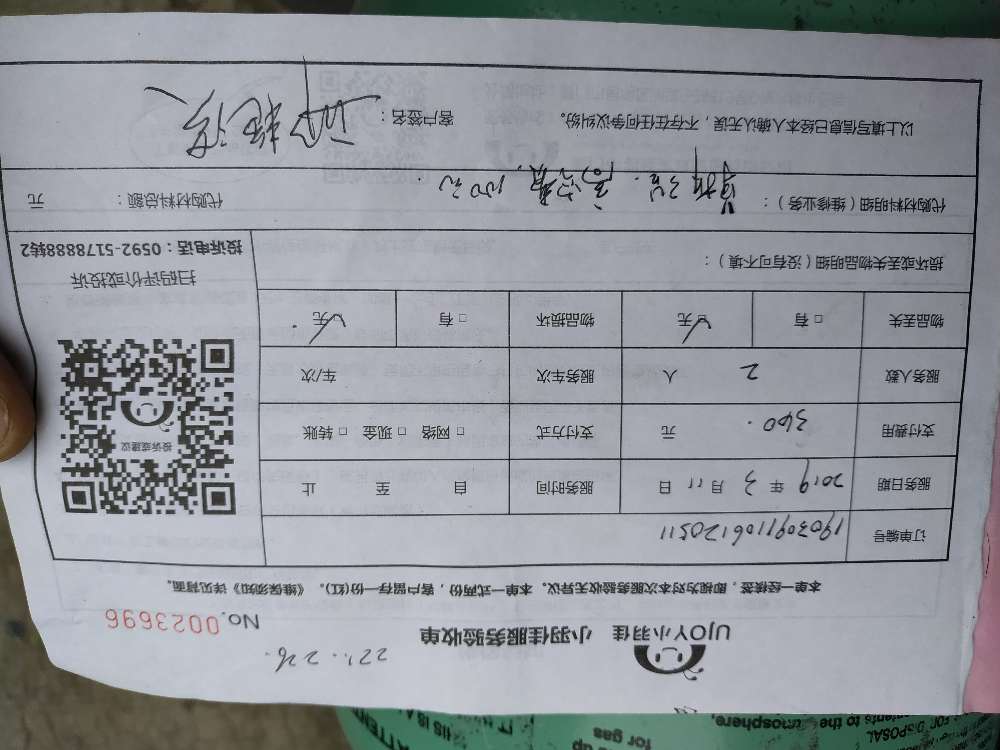 221. 226.
UJOY小羽佳 小羽佳服务验收单
No.0023696
本单一经核签，即视为对本次服务验收无异议。本单一式两份，客户留存一份(红)。《维保须知》详见背面。
订单编号 190309110612051 1
服务日期 2019年3月11日 服务时间 自 至 止
支付费用 360. 元 支付方式 □ 网络 □ 现金 □ 转账
服务人数 2 人 服务车次 车/次
物品丢失 □ 有 □无 物品损坏 □ 有 □无
损坏或丢失物品明细（没有可不填）：
投诉或建议
扫码评价或投诉
投诉电话：0592-5178888转2
代购材料明细（维修业务）：
100元
代购材料总额： 元
以上填写信息已经本人确认无误，不存在任何争议纠纷。
客户签名：
ATTENT
for gas
DISPOSAL